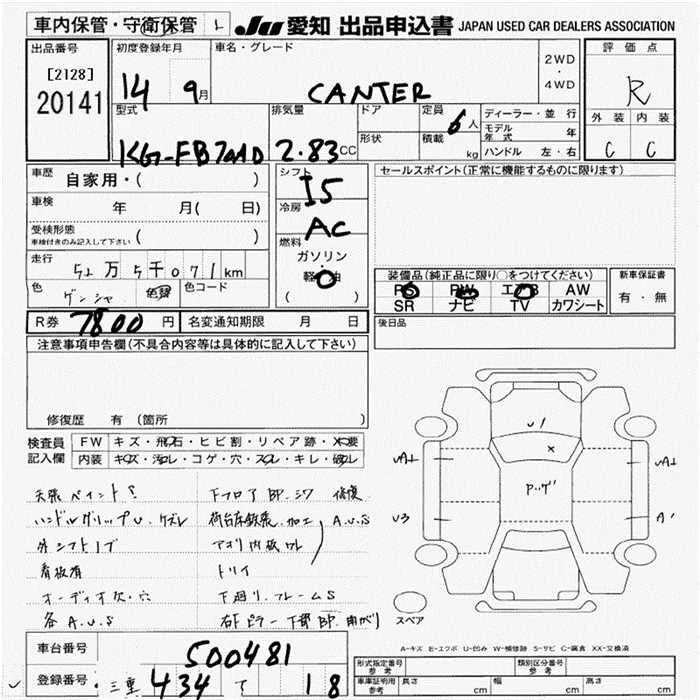 車内保管・守衛保管 L
JU 愛知 出品申込書 JAPAN USED CAR DEALERS ASSOCIATION
出品番号
[2128]
20141
初度登録年月
14 9月
車名・グレード
CANTER
2WD
・
4WD
評価点
R
外装 内装
C C
型式
KG-FB70ABD
排気量
2.83CC
ドア
形状
定員
6人
積載
kg
ディーラー・並行
モデル年式 年
ハンドル 左・右
車歴 自家用・( )
車検 年 月( 日)
受検形態
車検付きのみ記入して下さい ( )
走行 5 万5千071km
色 ゲンシャ 色替 色コード
シフト I5
冷房 AC
燃料
ガソリン
軽油
( )
セールスポイント(正常に機能するものに限ります)
装備品(純正品に限り○をつけてください)
PS PW エアB AW
SR ナビ TV カワシート
新車保証書
有・無
R券 7800円 名変通知期限 月 日
後日品
注意事項申告欄(不具合内容等は具体的に記入して下さい)
修復歴 有 (箇所 )
検査員
記入欄
FW キズ・飛石・ヒビ割・リペア跡・X要
内装 キズ・汚レ・コゲ・穴・スレ・キレ・破レ
天張 ペイントS
ハンドルグリップU. ケズレ
外シフトノブ
看板有
オーディオ欠・穴
各 A.U.S
下フロア BP. シワ 修復
荷台床鉄張. 加工 A.U.S
アオリ内板ワレ
トリイ
下廻リ. フレームS
右Fピラー下部BP. 曲がり
U1
X
P.ッゲ
UA1
UA1
U3
A1
スペア
A-キズ E-エクボ U-凹み W-補修跡 S-サビ C-腐食 XX-交換済
車台番号 500481
登録番号 三重 434 て 18
形式指定番号
参考
類別区分番号
参考
車庫証明用
参考
長さ cm 幅 cm 高さ cm